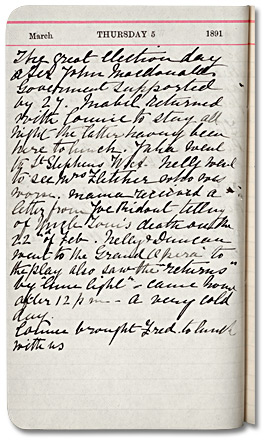 March THURSDAY 5 1891
The great election day
Sir John Macdonald's
Goverment supported
by 27. Mabel returned
with Connie to stay all
night the latter having been
here to lunch. Julia went
to St Stephens W.A. Nelly went
to see Mrs Fletcher who is
worse. Mama received a
letter from Joe Ridout telling
of Uncle Louis death on the
22nd of Feb. Nelly & Duncan
went to the Grand Opera to
the play also saw the "returns"
by "lime light" - came home
after 12 pm - a very cold
day.
Connie brought Fred. to lunch
with us